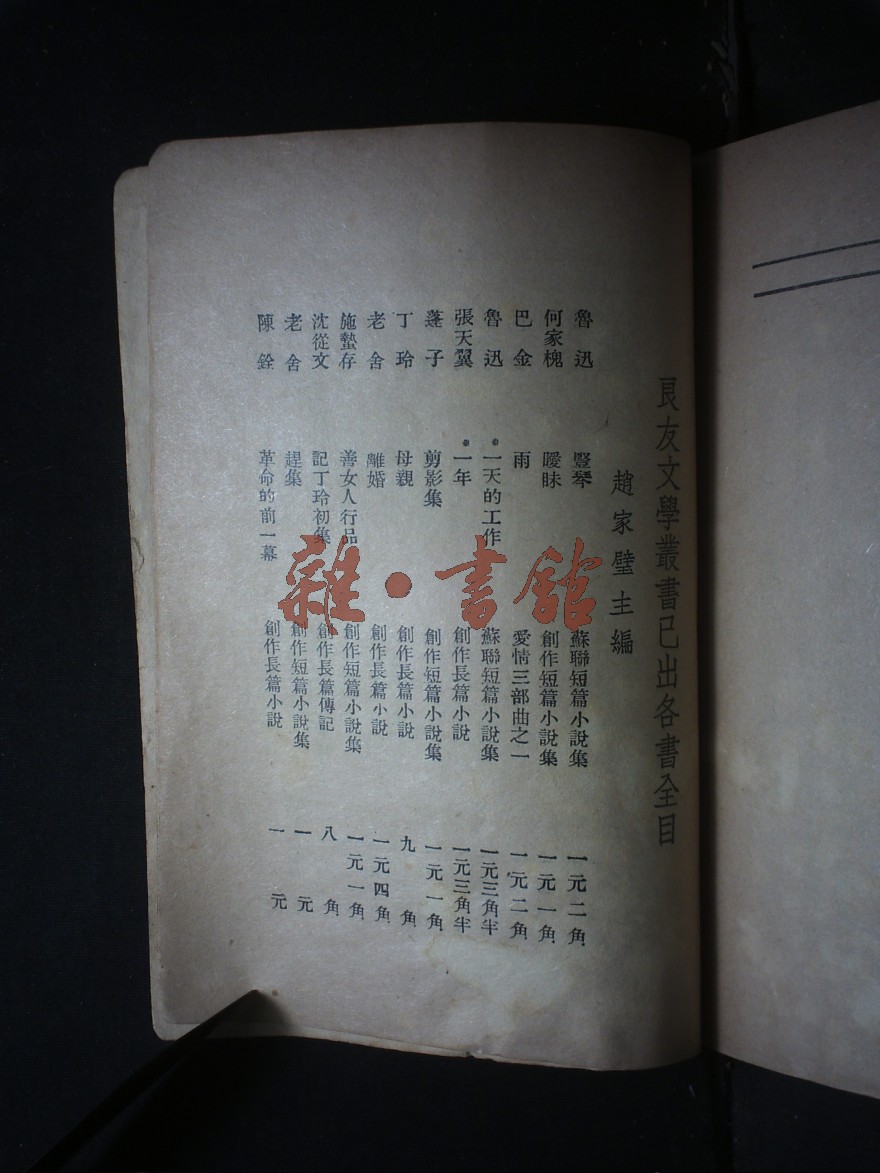 良友文學叢書已出各書全目
趙家璧主編
魯迅 豎琴 蘇聯短篇小說集 一元二角
何家槐 曖昧 創作短篇小說集 一元一角
巴金 雨 愛情三部曲之一 一元二角
魯迅 •一天的工作 蘇聯短篇小說集 一元三角半
張天翼 •一年 創作長篇小說 一元三角半
蓬子 剪影集 創作短篇小說集 一元一角
丁玲 母親 創作長篇小說 九角
老舍 離婚 創作長篇小說 一元四角
施蟄存 善女人行品 創作短篇小說集 一元一角
沈從文 記丁玲初集 創作長篇傳記 八角
老舍 趕集 創作短篇小說集 一元
陳銓 革命的前一幕 創作長篇小說 一元
雜·書館